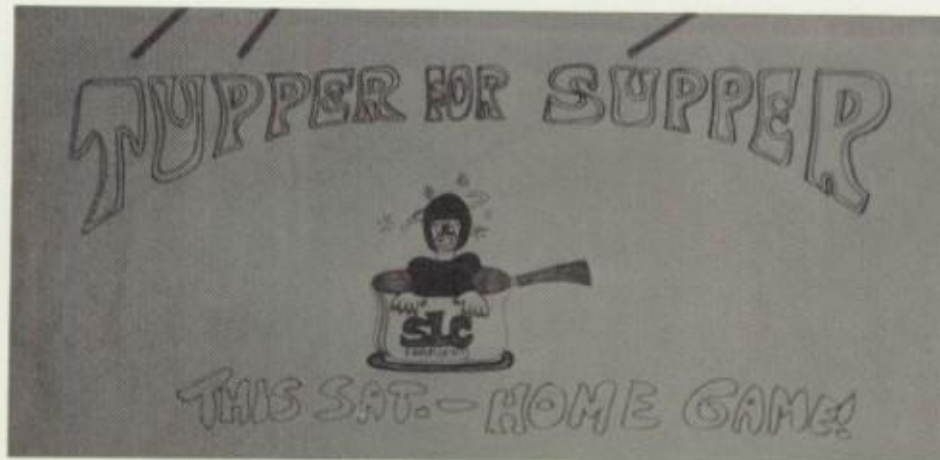 TUPPER FOR SUPPER
SLC
THIS SAT. - HOME GAME!